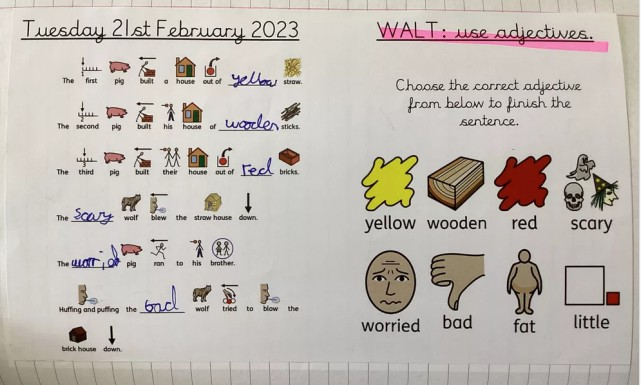 Tuesday 21st February 2023
The first pig built a house out of yellow straw.
The second pig built his house of wooden sticks.
The third pig built their house out of red bricks.
The scary wolf blew the straw house down.
The worrid pig ran to his brother.
Huffing and puffing the bad wolf tried to blow the
brick house down.
WALT: use adjectives.
Choose the correct adjective
from below to finish the
sentence.
yellow wooden red scary
worried bad fat little